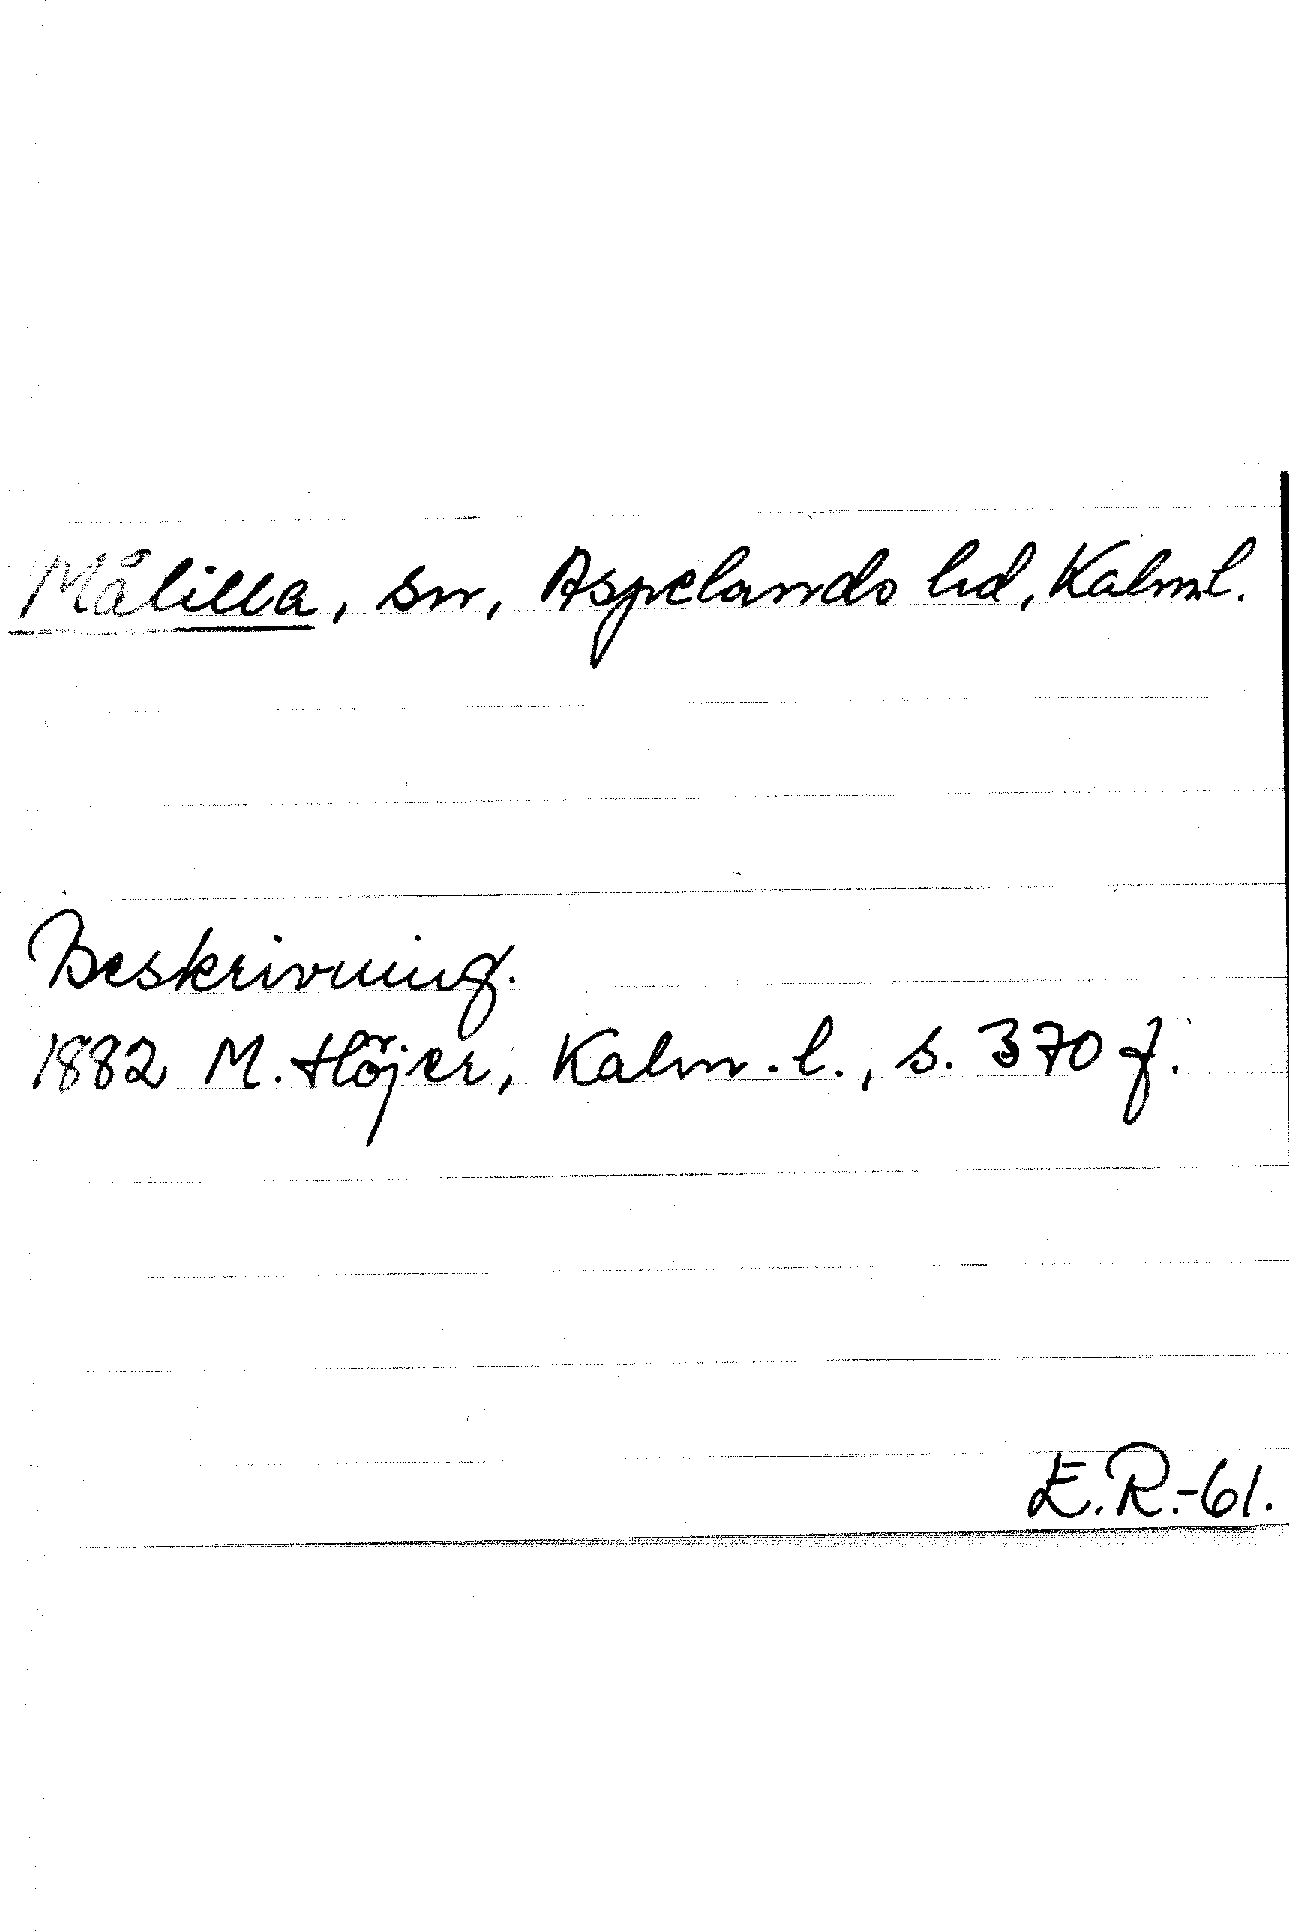 Målilla, sn, Aspelands hd, Kalml.
Beskrivning.
1882 M. Höjer, Kalm. l., s. 370 f.
E.R.-61.